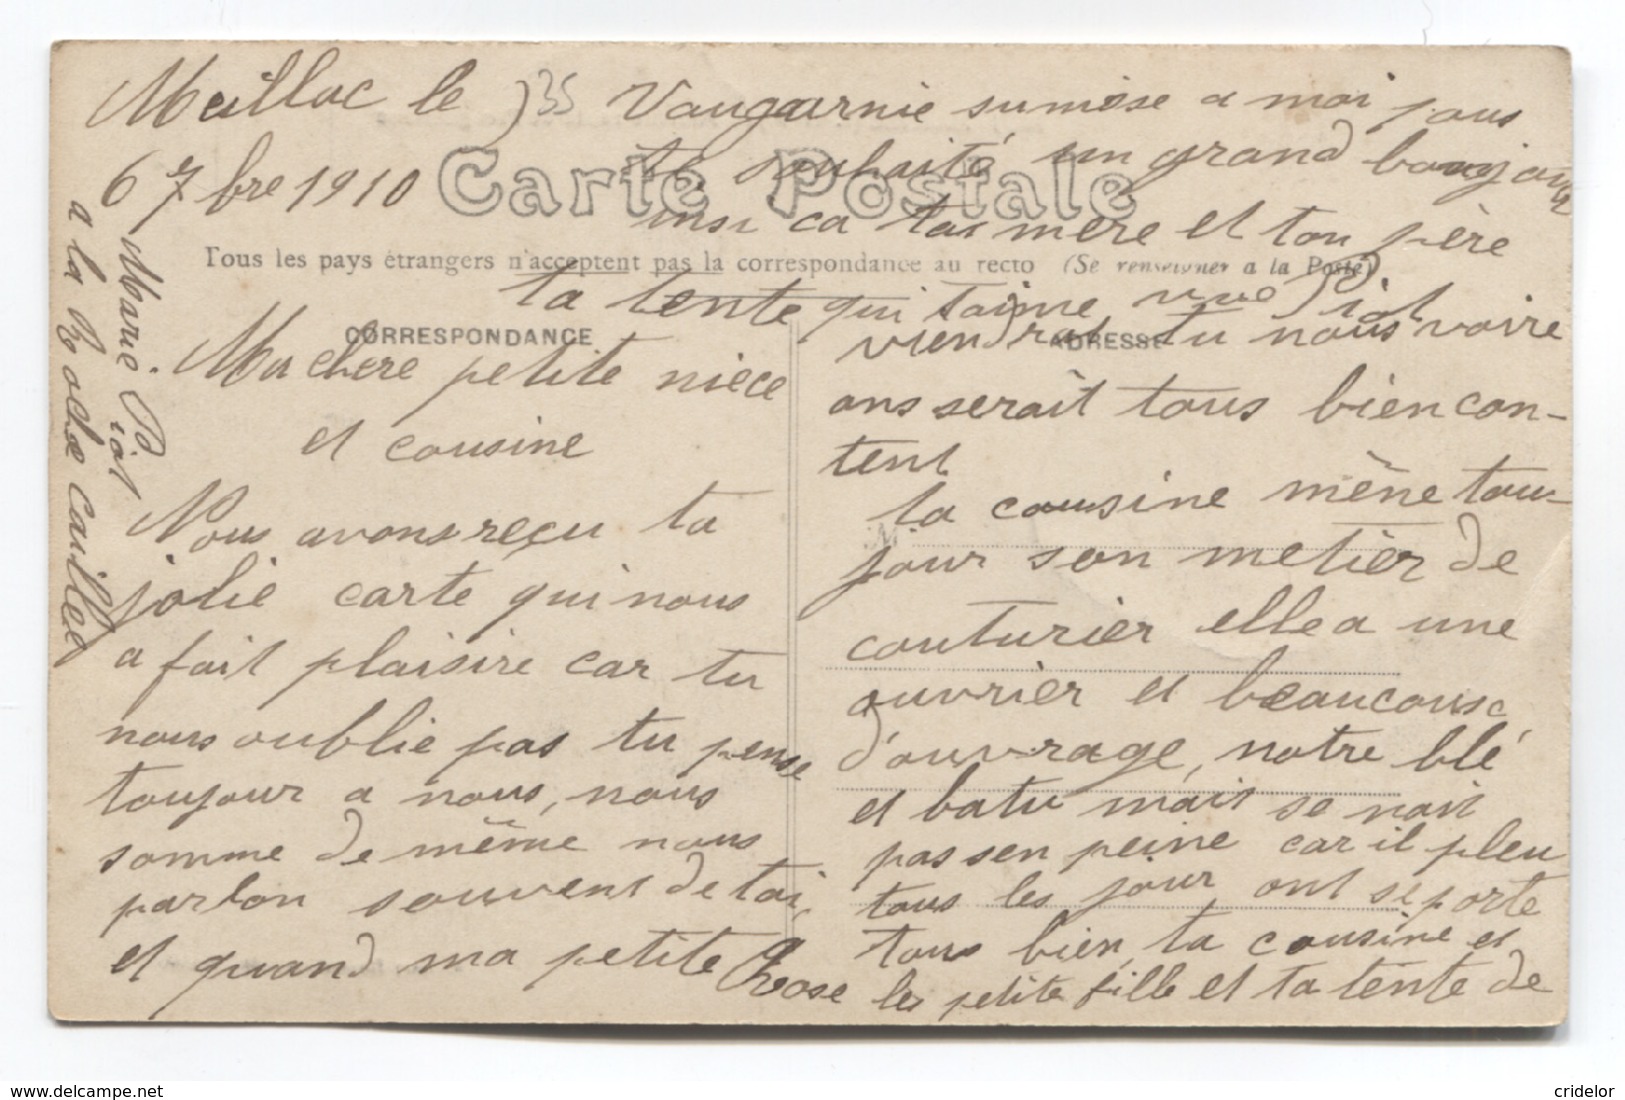 Meillac le
6 7bre 1910
35
Carte Postale
Tous les pays étrangers n'acceptent pas la correspondance au recto (Se renseigner a la Poste)
CORRESPONDANCE
ADRESSE
Ma chere petite niece
et cousine
Nous avons reçu ta
jolie carte qui nous
a fait plaisire car tu
nous oublie pas tu pense
toujour a nous, nous
somme de même nous
parlon souvent de toi,
et quand ma petite Rose
viendrat tu nous voire
ons serait tous bien con-
tent
ta cousine mène tou-
jour son metier de
couturier elle a une
ouvrier et beaucous
d'ouvrage, notre blé
et batu mais se nait
pas sen peine car il pleu
tous les jour ont se porte
tous bien, ta cousine et
les petite fille et ta tente de
Vaugarnie sumose a moi pous
te souhaité un grand bongjour
insi ca ta mere et ton père
ta tente qui taime Piot
Marie Piot
a la Roche caillee
M
cridelor - delcampe.net